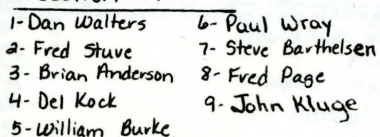 1- Dan Walters
2- Fred Stuve
3- Brian Anderson
4- Del Kock
5- William Burke
6- Paul Wray
7- Steve Barthelsen
8- Fred Page
9- John Kluge